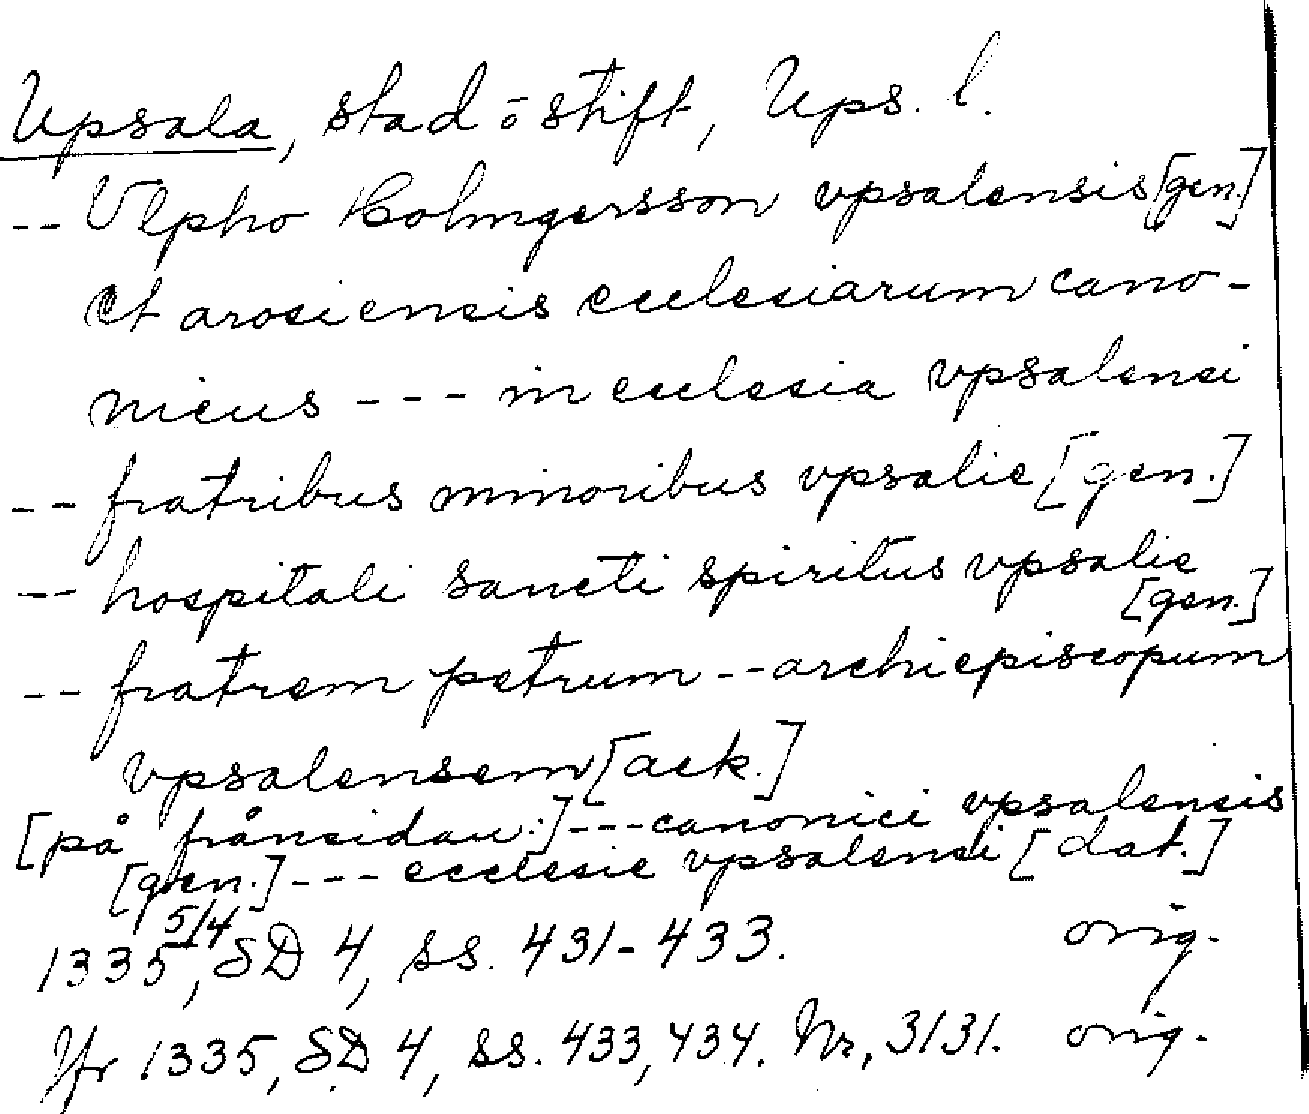 Upsala, stad o stift, Ups. l.
-- Vlpho Holmgersson vpsalensis [gen.]
et arosiensis ecclesiarum cano-
nicus --- in ecclesia vpsalensi
-- fratribus minoribus vpsalie [gen.]
-- hospitali sancti spiritus vpsalie
[gen.]
-- fratrem petrum -- archiepiscopum
vpsalensem [ack.]
[på frånsidan:] --- canonici vpsalensis
[gen.] --- ecclesie vpsalensi [dat.]
1335 5/4, SD 4, ss. 431-433. orig.
Jfr 1335, SD 4, ss. 433, 434. Nr. 3131. orig.